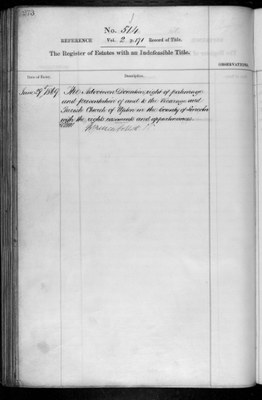 No. 514
REFERENCE Vol. 2 p. 171 Record of Title.
The Register of Estates with an Indefeasible Title.
OBSERVATIONS.
Date of Entry.
Description.
June 29th 1869
The Advowson Donation, right of patronage
and presentation of and to the Vicarage and
Parish Church of in the County of
with the rights and appurtenances